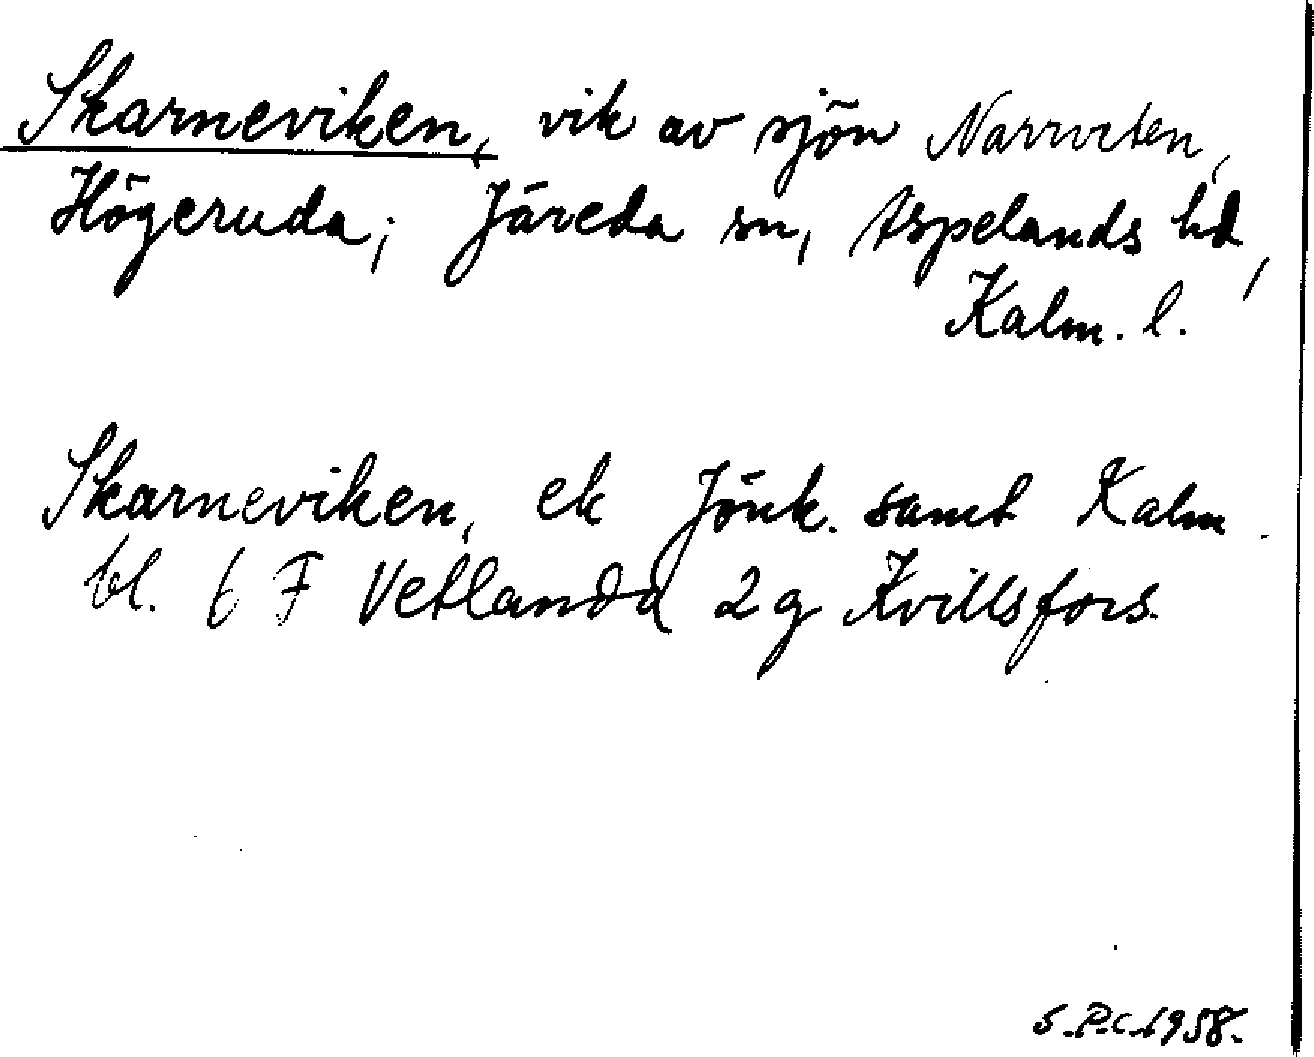 Skarneviken, vik av sjön Narrveten,
Högeruda; Järeda sn, Aspelands hd,
Kalm. l.
Skarneviken, ek Jönk. samt Kalm.
bl. 6 F Vetlanda 2 g Kvillsfors.
S.P.C. 1958.